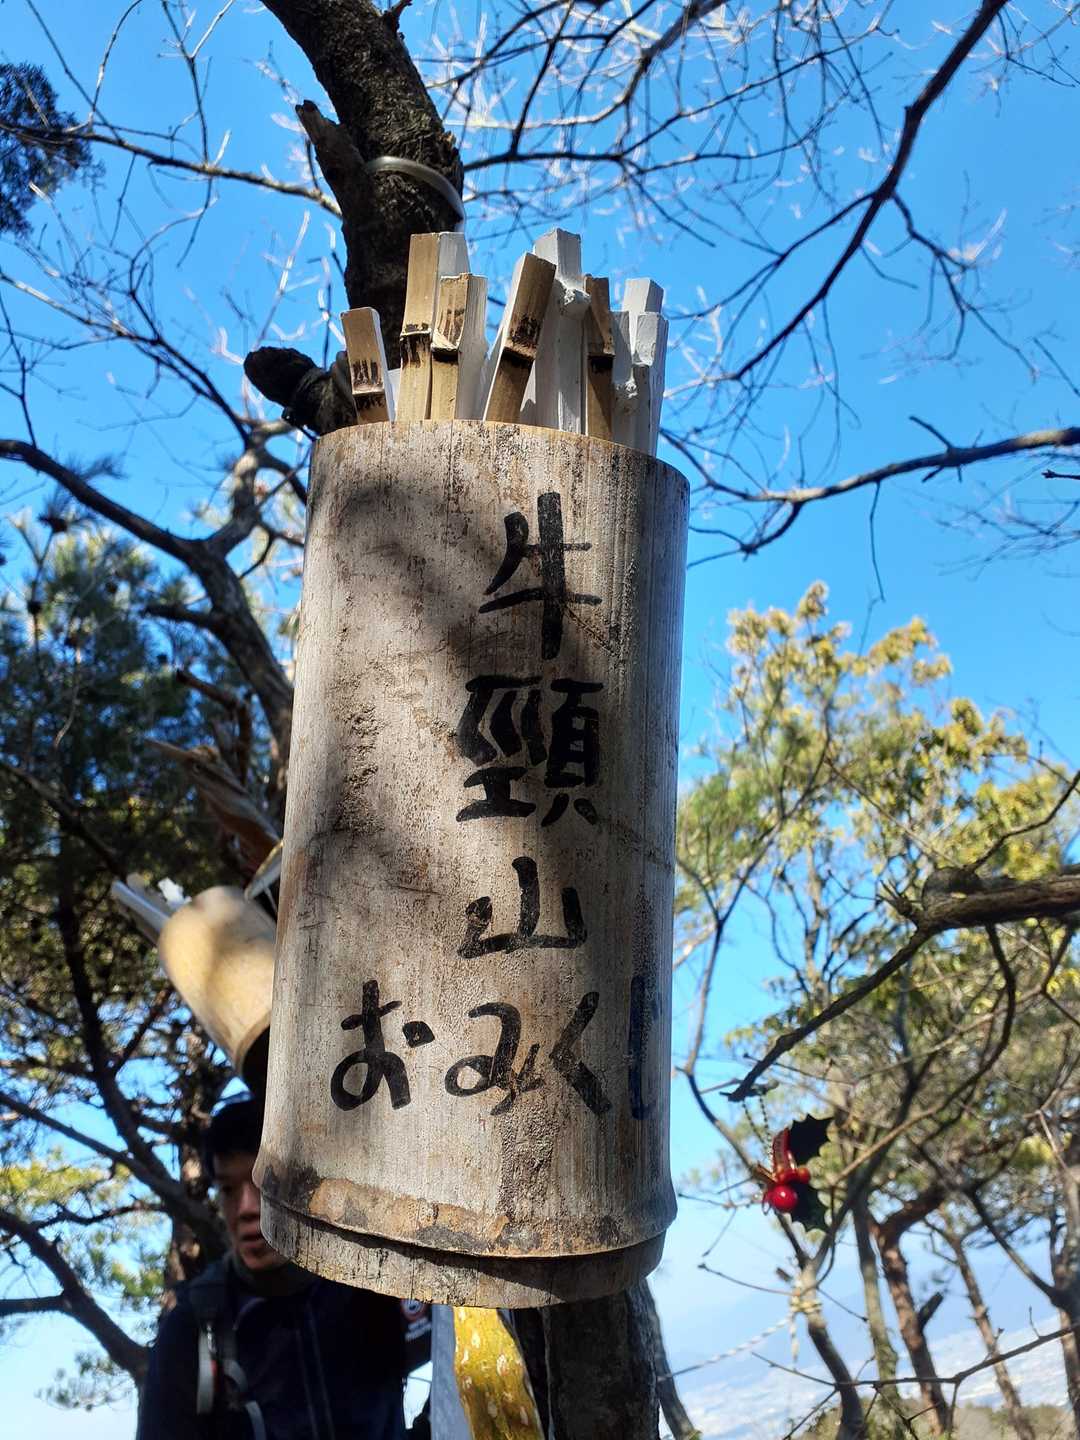 牛頸山
おみくじ